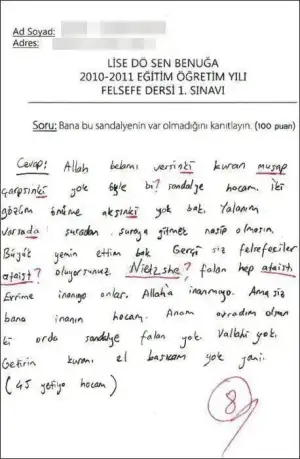 Ad Soyad:
Adres:
LİSE DÖ SEN BENUĞA
2010-2011 EĞİTİM ÖĞRETİM YILI
FELSEFE DERSİ 1. SINAVI
Soru: Bana bu sandalyenin var olmadığını kanıtlayın. (100 puan)
Cevap: Allah belamı versinki kuran musap
çarpsınki yok öyle bi? sandalye hocam. İki
gözüm önüme aksınki yok bak. Yalanım
varsada! şuradan şuraya gitmek nasip olmasın.
Büyük yemin ettim bak Gerçi siz felsefeciler
ataist? oluyorsunuz. Nietzshe? falan hep ataist.
Evrime inanıyo onlar. Allah'a inanmıyo. Ama siz
bana inanın hocam. Anam avradım olsun
ki orda sandalye falan yok. Vallahi yok.
Getirin kuranı el basıcam yok yani.
(45 yetiyo hocam)
8